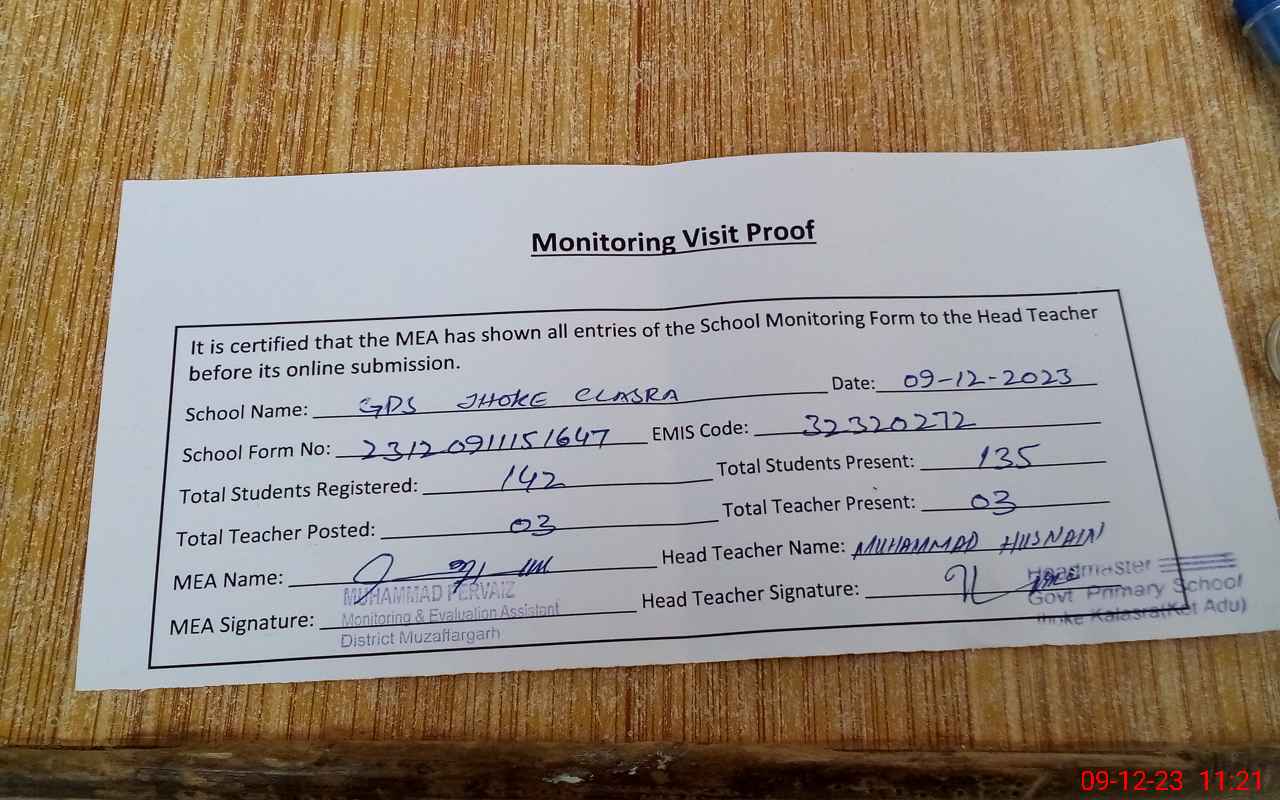 Monitoring Visit Proof
It is certified that the MEA has shown all entries of the School Monitoring Form to the Head Teacher
before its online submission.
School Name: GPS JHOKE CLASRA Date: 09-12-2023
School Form No: 231209111151647 EMIS Code: 32320272
Total Students Registered: 142 Total Students Present: 135
Total Teacher Posted: 03 Total Teacher Present: 03
MEA Name: Head Teacher Name: MUHAMMAD HUSNAIN
MUHAMMAD PERVAIZ
Monitoring & Evaluation Assistant
District Muzaffargarh
MEA Signature: Head Teacher Signature:
Headmaster
Govt Primary School
Jhoke Kalasra(Kot Adu)
09-12-23 11:21